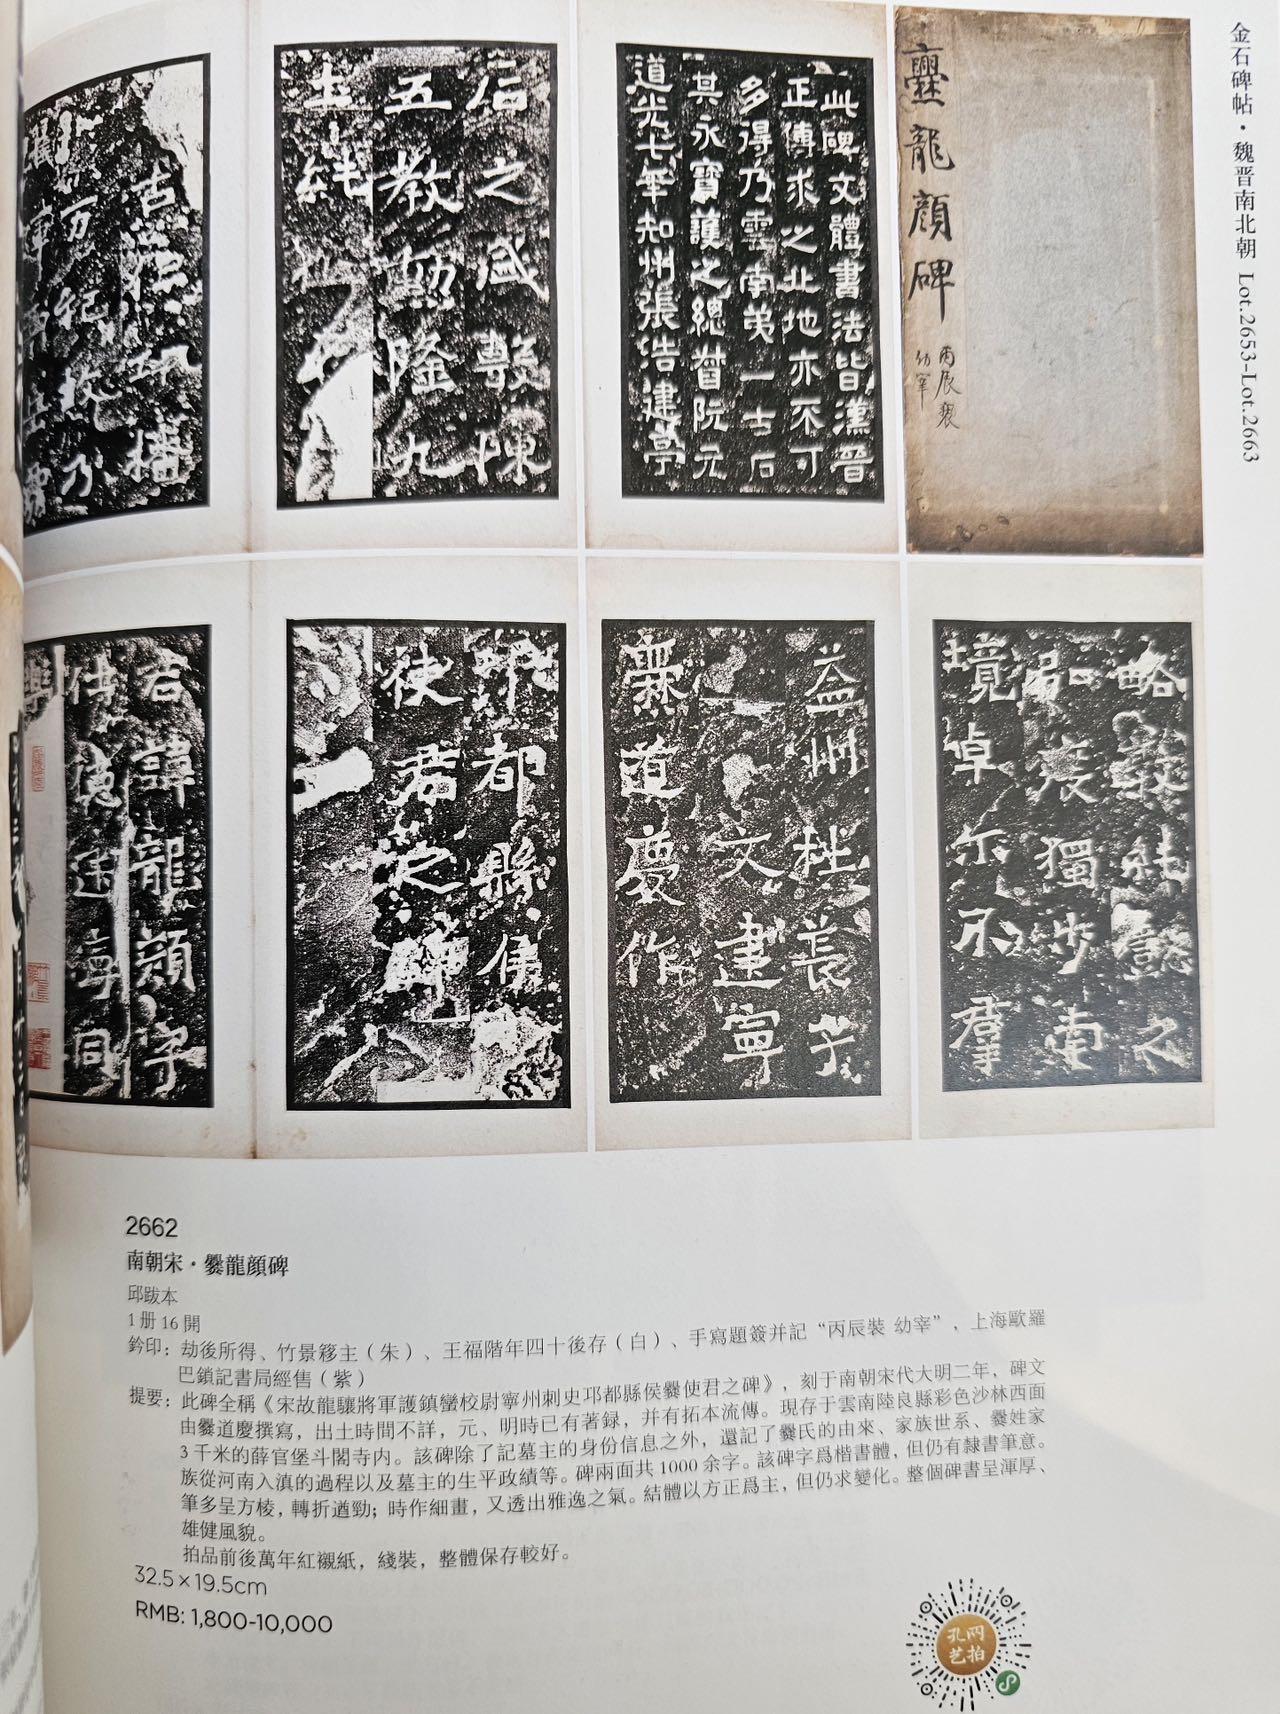 金石碑帖·魏晋南北朝 Lot.2653-Lot.2663
爨龍顔碑
丙辰裝
幼宰
此碑文體書法皆漢晉
正傳求之北地亦不可
多得乃雲南第一古石
其永寶護之總督阮元
道光七年知州張浩建亭
后之盛敷陳
五教勳隆九
土純
古
萬紀
略
獨步南
境卓尒不羣
益州
杜萇子
文建寧
爨道慶作
邛都縣侯
使君之碑
君諱龍顔字
仕德建寧同
2662
南朝宋·爨龍顔碑
邱跋本
1册16開
鈐印：劫後所得、竹景簃主（朱）、王福階年四十後存（白）、手寫題簽并記“丙辰裝 幼宰”，上海歐羅
巴鎖記書局經售（紫）
提要：此碑全稱《宋故龍驤將軍護鎮蠻校尉寧州刺史邛都縣侯爨使君之碑》，刻于南朝宋代大明二年，碑文
由爨道慶撰寫，出土時間不詳，元、明時已有著録，并有拓本流傳。現存于雲南陸良縣彩色沙林西面
3千米的薛官堡斗閣寺内。該碑除了記墓主的身份信息之外，還記了爨氏的由來、家族世系、爨姓家
族從河南入滇的過程以及墓主的生平政績等。碑兩面共1000余字。該碑字爲楷書體，但仍有隸書筆意。
筆多呈方棱，轉折遒勁；時作細畫，又透出雅逸之氣。結體以方正爲主，但仍求變化。整個碑書呈渾厚、
雄健風貌。
拍品前後萬年紅襯紙，綫裝，整體保存較好。
32.5×19.5cm
RMB: 1,800-10,000
孔网
艺拍